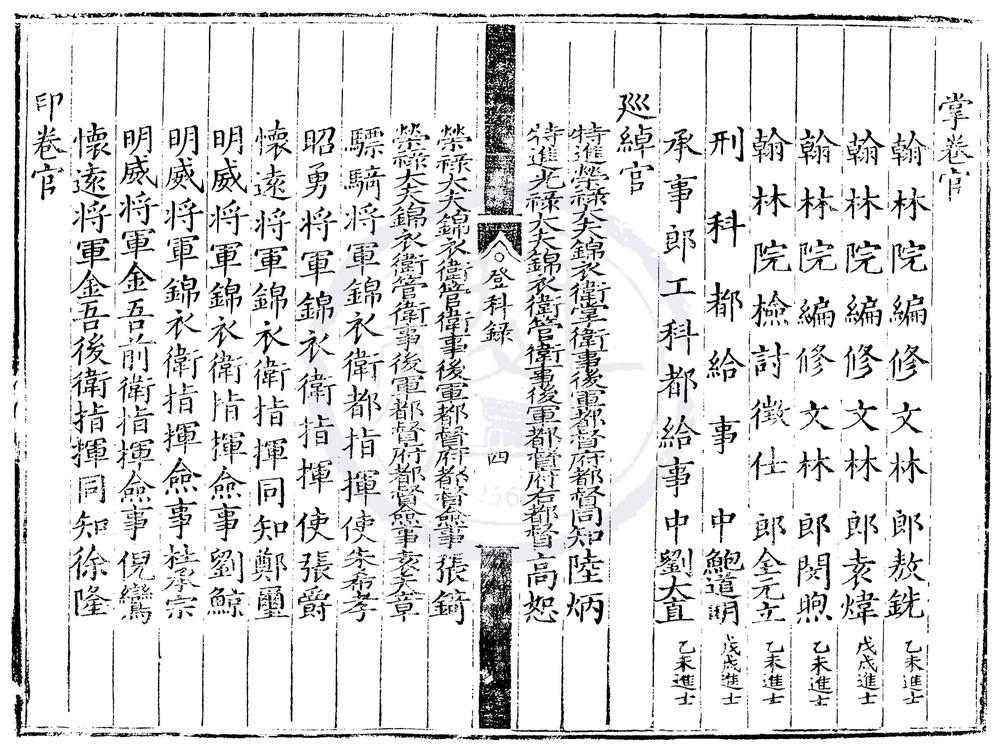 掌卷官
翰林院編修文林郎敖銑乙未進士
翰林院編修文林郎袁煒戊戌進士
翰林院編修文林郎閔煦乙未進士
翰林院檢討徵仕郎金元立乙未進士
刑科都給事中鮑道明戊戌進士
承事郎工科都給事中劉大直乙未進士
廵綽官
特進榮祿大夫錦衣衛掌衛事後軍都督府都督同知陸炳
特進光祿大夫錦衣衛管衛事後軍都督府右都督高恕
登科録
四
榮祿大夫錦衣衛管衛事後軍都督府都督僉事張錡
榮祿大夫錦衣衛管衛事後軍都督府都督僉事袁天章
驃騎將軍錦衣衛都指揮使朱希孝
昭勇將軍錦衣衛指揮使張爵
懷遠將軍錦衣衛指揮同知鄭璽
明威將軍錦衣衛指揮僉事劉鯨
明威將軍錦衣衛指揮僉事杜承宗
明威將軍金吾前衛指揮僉事倪鸞
懷遠將軍金吾後衛指揮同知徐隆
印卷官